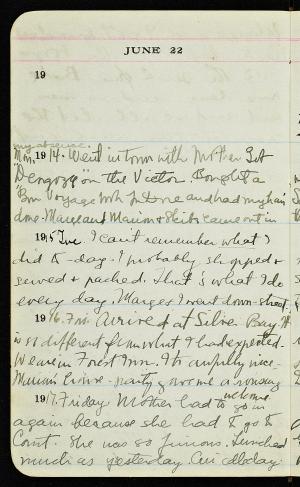 JUNE 22
19
my absence.
Mon. 1914. Went in town with Mother Got
"Dengozo" on the Victor. Bought a
"Bon Voyage bok. In Done and had my hair
done. Marge and Marion & Sheib came out in
1915 Tue. I can't remember what I
did to-day. I probably shopped &
sewed & packed. That's what I do
every day. Marge & I went down-street.
1916. Thu. Arrived at Silver Bay. It
is so different from what I had expected.
We are in Forest Inn. It's awfully nice.
Marion's house-party gave me a rousing
1917. Friday. Mother had to go in welcome
again because she had to go to
Court. She was so furious. Lunched
much as yesterday. Am all day